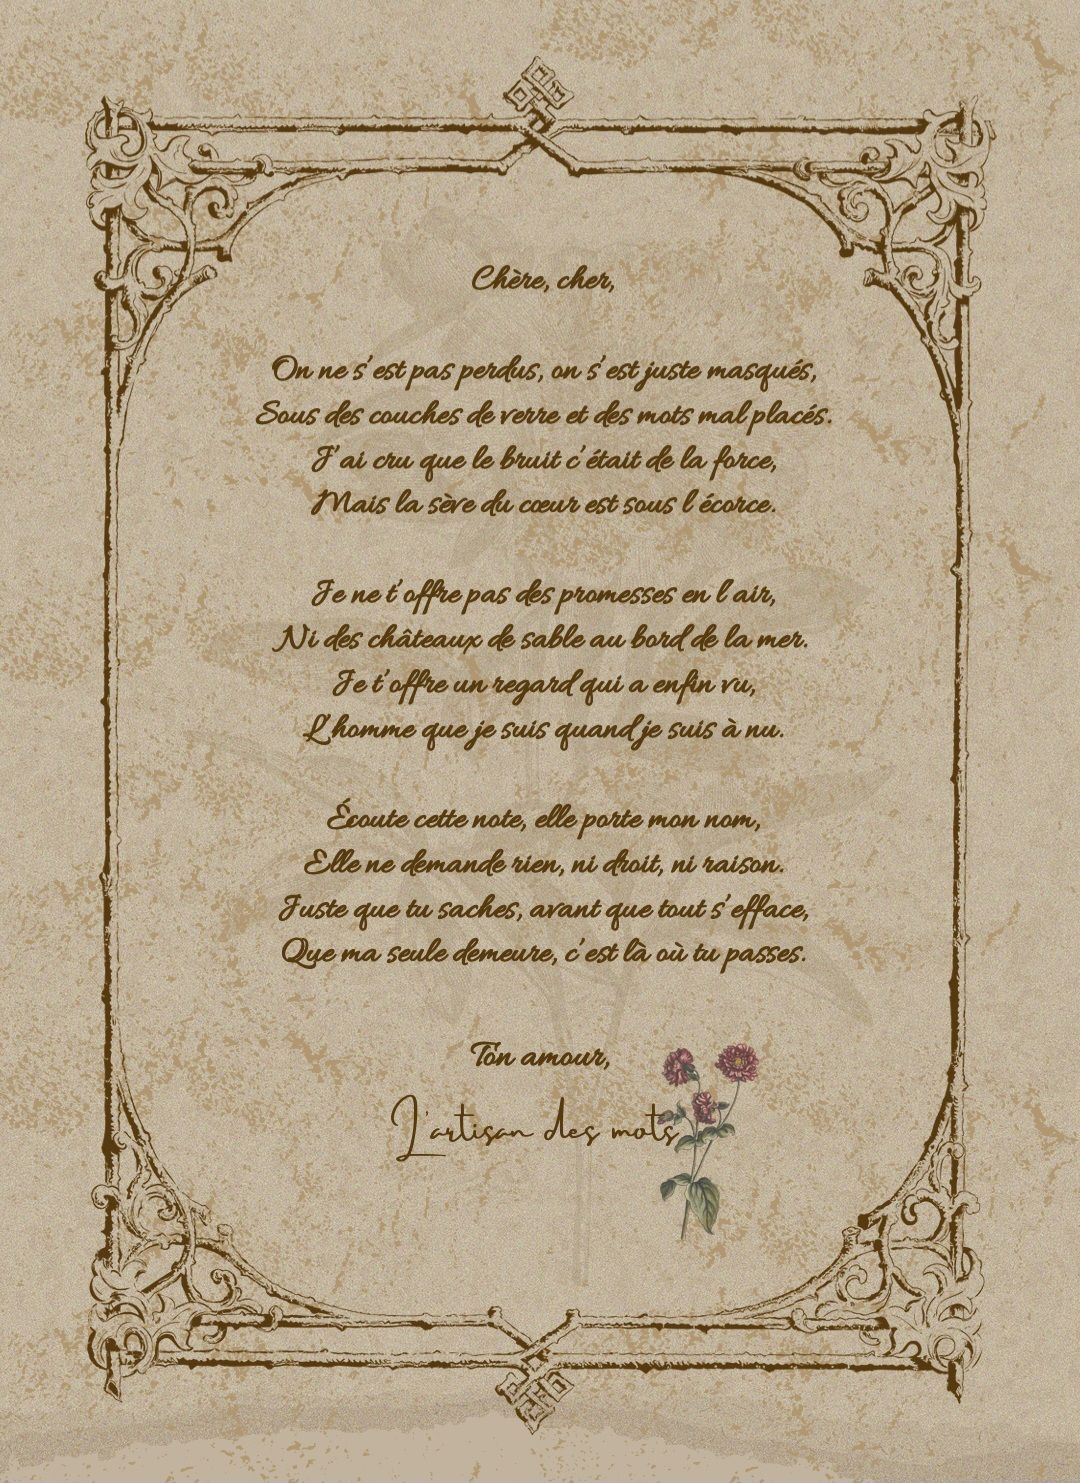 Chère, cher,
On ne s'est pas perdus, on s'est juste masqués,
Sous des couches de verre et des mots mal placés.
J'ai cru que le bruit c'était de la force,
Mais la sève du cœur est sous l'écorce.
Je ne t'offre pas des promesses en l'air,
Ni des châteaux de sable au bord de la mer.
Je t'offre un regard qui a enfin vu,
L'homme que je suis quand je suis à nu.
Écoute cette note, elle porte mon nom,
Elle ne demande rien, ni droit, ni raison.
Juste que tu saches, avant que tout s'efface,
Que ma seule demeure, c'est là où tu passes.
Ton amour,
L'artisan des mots